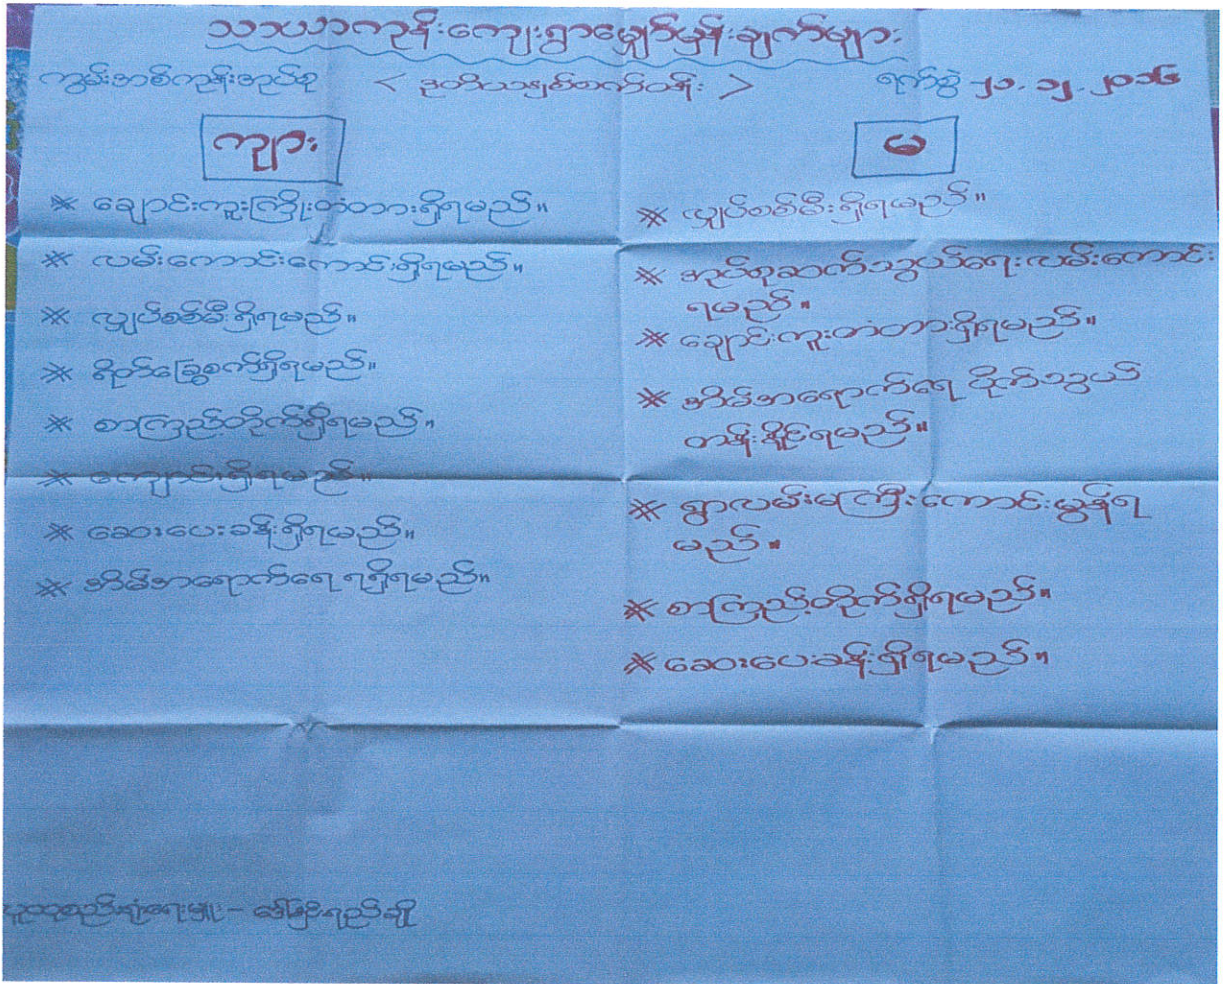 သာယာကုန်းကျေးရွာမျှော်မှန်းချက်များ
ကျွမ်းတစ်ကုန်းအုပ်စု < ဒုတိယနှစ်စက်ဝန်း > ရက်စွဲ ၂၁. ၁၂. ၂၀၁၆
ကျား
မ
※ ချောင်းကူးကြိုးတံတားရှိရမည်။
※ လမ်းကောင်းကောင်းရှိရမည်။
※ လျှပ်စစ်မီးရှိရမည်။
※ ရိတ်ခြွေစက်ရှိရမည်။
※ စာကြည့်တိုက်ရှိရမည်။
※ ကျောင်းရှိရမည်။
※ ဆေးပေးခန်းရှိရမည်။
※ အိမ်အရောက်ရေ ရရှိရမည်။
※ လျှပ်စစ်မီးရှိရမည်။
※ အုပ်စုဆက်သွယ်ရေးလမ်းကောင်း
ရမည်။
※ ချောင်းကူးတံတားရှိရမည်။
※ အိမ်အရောက်ရေ ပိုက်သွယ်
တန်းနိုင်ရမည်။
※ ရွာလမ်းမကြီးကောင်းမွန်ရ
မည်။
※ စာကြည့်တိုက်ရှိရမည်။
※ ဆေးပေးခန်းရှိရမည်။
လူထုစည်းရုံးရေးမှူး – ဒေါ်မြင့်ရည်ချို